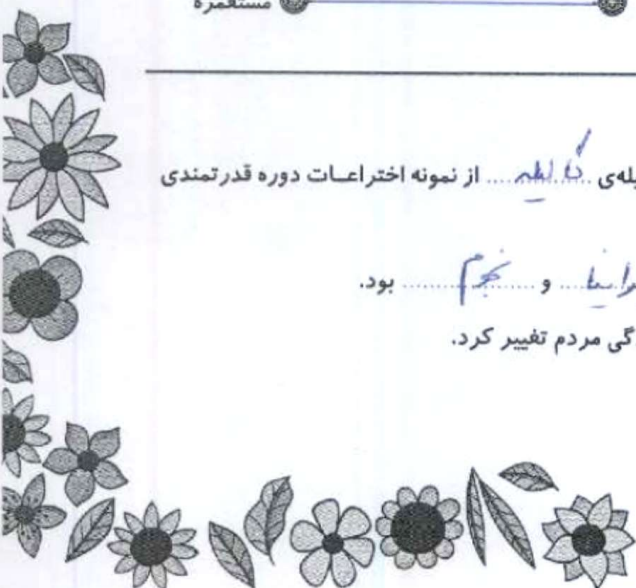 مستعمره
یله‌ی گالیله از نمونه اختراعات دوره قدرتمندی
و نجوم بود.
گی مردم تغییر کرد.